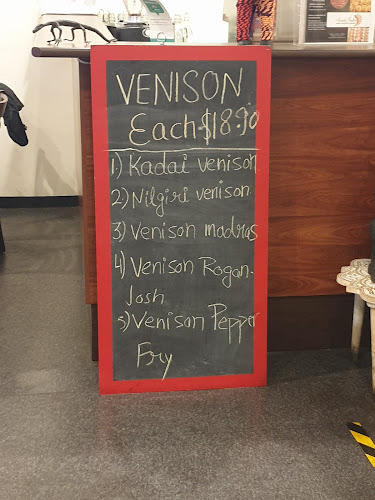 VENISON
Each $18.90
1) Kadai venison
2) Nilgiri venison
3) Venison madras
4) Venison Rogan-
Josh
5) Venison Pepper
Fry